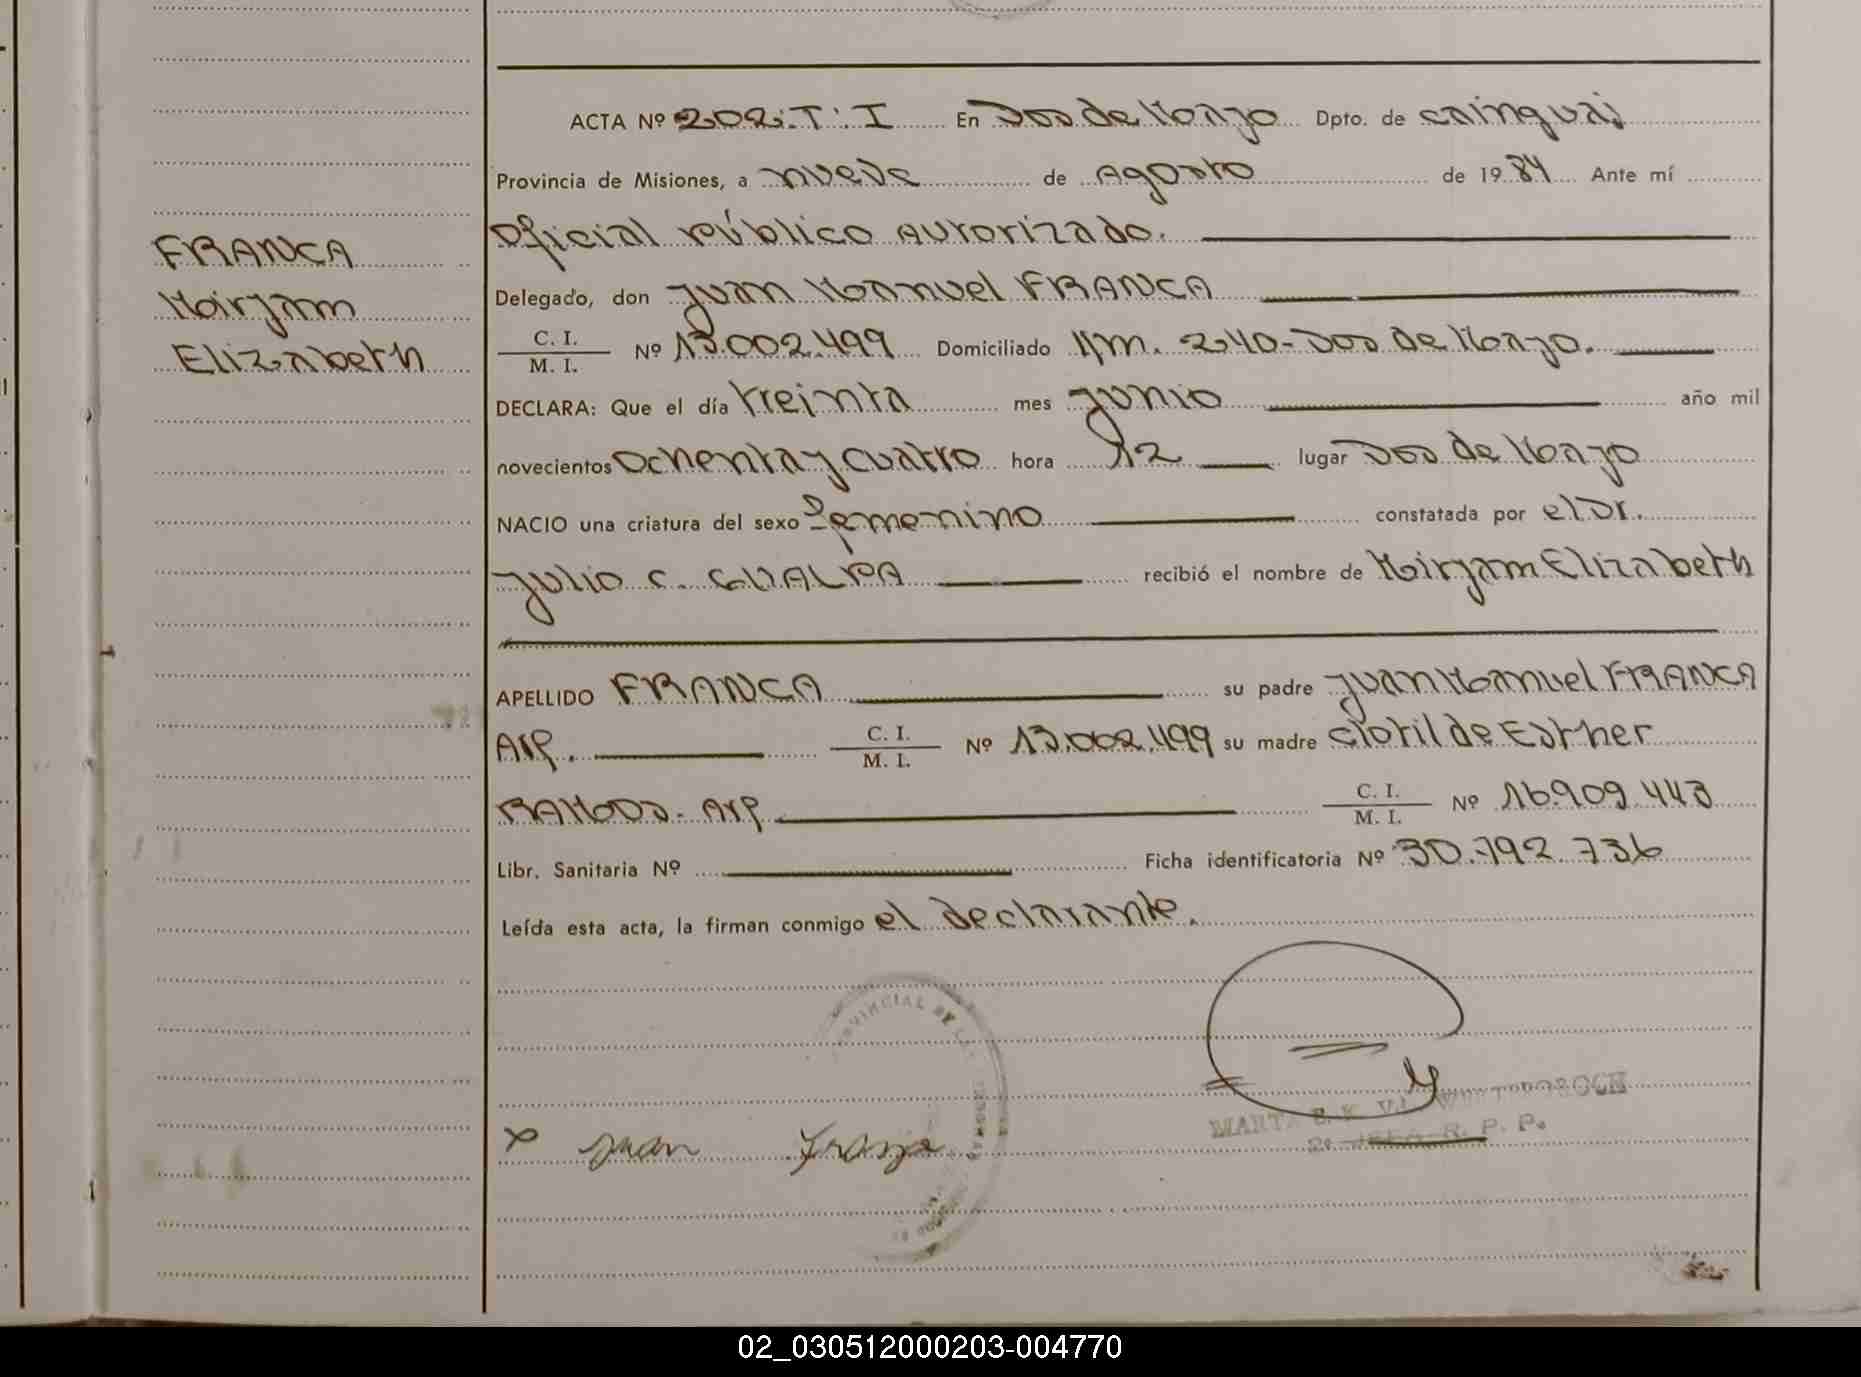 ACTA Nº 202. T: I En Dos de Mayo Dpto. de cainguaj
Provincia de Misiones, a nueve de Agosto de 1984 Ante mí
Oficial público Autorizado.
FRANCA
Delegado, don Juan Manuel FRANCA
Mirjam
C. I.
M. I.
Nº 13.002.499 Domiciliado Km. 240-Dos de Mayo.
Elizabeth
DECLARA: Que el día treinta mes junio año mil
novecientos ochenta y cuatro hora 12 lugar Dos de Mayo
NACIO una criatura del sexo femenino constatada por el Dr.
Julio C. GUALPA recibió el nombre de Mirjam Elizabeth
APELLIDO FRANCA su padre Juan Manuel FRANCA
Arg. C. I.
M. I.
Nº 13.002.499 su madre clotilde Esther
RAMOS. Arg. C. I.
M. I.
Nº 16.909.443
Libr. Sanitaria Nº Ficha identificatoria Nº 30.792.736
Leída esta acta, la firman conmigo el declarante.
PROVINCIAL DE LAS PERSONAS
x Juan Franca
MARTA
R. P. P.
02_030512000203-004770